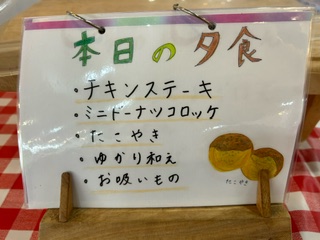 本日の夕食
・チキンステーキ
・ミニドーナツコロッケ
・たこやき
・ゆかり和え
・お吸いもの
たこやき